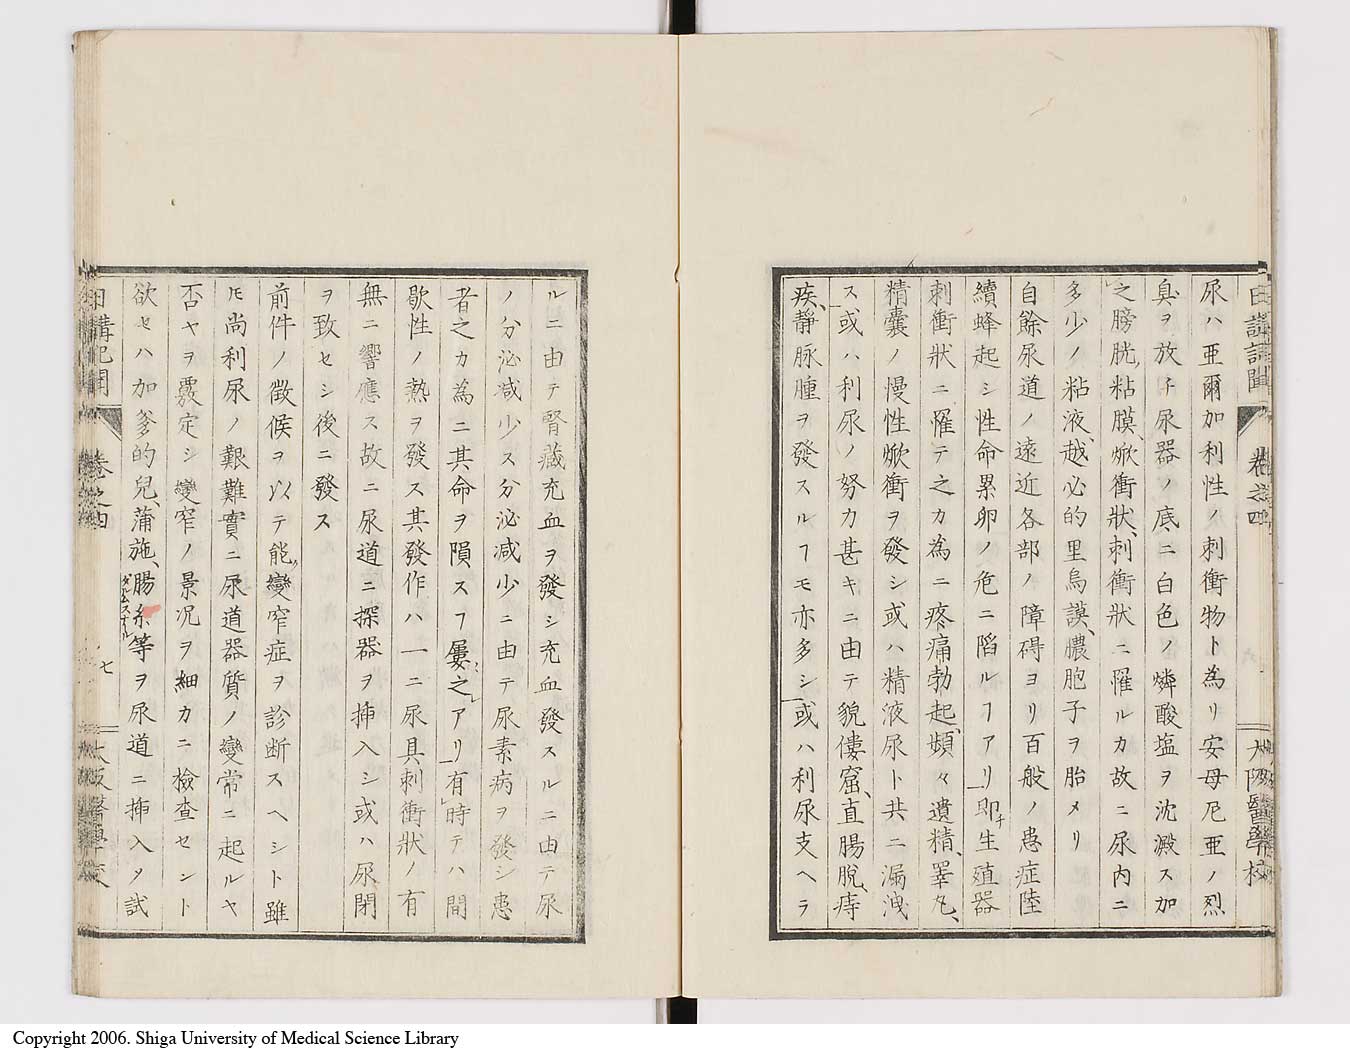 尿ハ亜爾加利性ノ刺衝物ト為リ安母尼亜ノ烈
臭ヲ放チ尿器ノ底ニ白色ノ燐酸塩ヲ沈澱ス加
之膀胱粘膜、焮衝状、刺衝状ニ罹ルカ故ニ尿内ニ
多少ノ粘液、越必的里烏謨、膿胞子ヲ胎メリ
自餘尿道ノ遠近各部ノ障碍ヨリ百般ノ患症陸
續蜂起シ性命累卵ノ危ニ陷ルヿアリ即チ生殖器
刺衝状ニ罹テ之カ為ニ疼痛勃起、頻々遺精、睪丸、
精嚢ノ慢性焮衝ヲ發シ或ハ精液尿ト共ニ漏洩
ス或ハ利尿ノ努力甚キニ由テ貌僂窟、直腸脱、痔
疾、静脉腫ヲ發スルヿモ亦多シ或ハ利尿支ヘラ
日講記聞 卷之四 大阪醫學校
ルニ由テ腎藏充血ヲ發シ充血發スルニ由テ尿
ノ分泌减少ス分泌减少ニ由テ尿素病ヲ發シ患
者之カ為ニ其命ヲ隕スヿ屢之アリ有時テハ間
歇性ノ熱ヲ發ス其發作ハ一ニ尿具刺衝状ノ有
無ニ響應ス故ニ尿道ニ探器ヲ挿入シ或ハ尿閉
ヲ致セシ後ニ發ス
前件ノ徴候ヲ以テ能變窄症ヲ診断スヘシト雖
𪜈尚利尿ノ艱難實ニ尿道器質ノ變常ニ起ルヤ
否ヤヲ覈定シ變窄ノ景况ヲ細カニ檢査セント
欲セハ加爹的兒、蒲施、腸糸等ヲ尿道ニ挿入メ試
日講記聞 卷之四 七 大阪醫學校